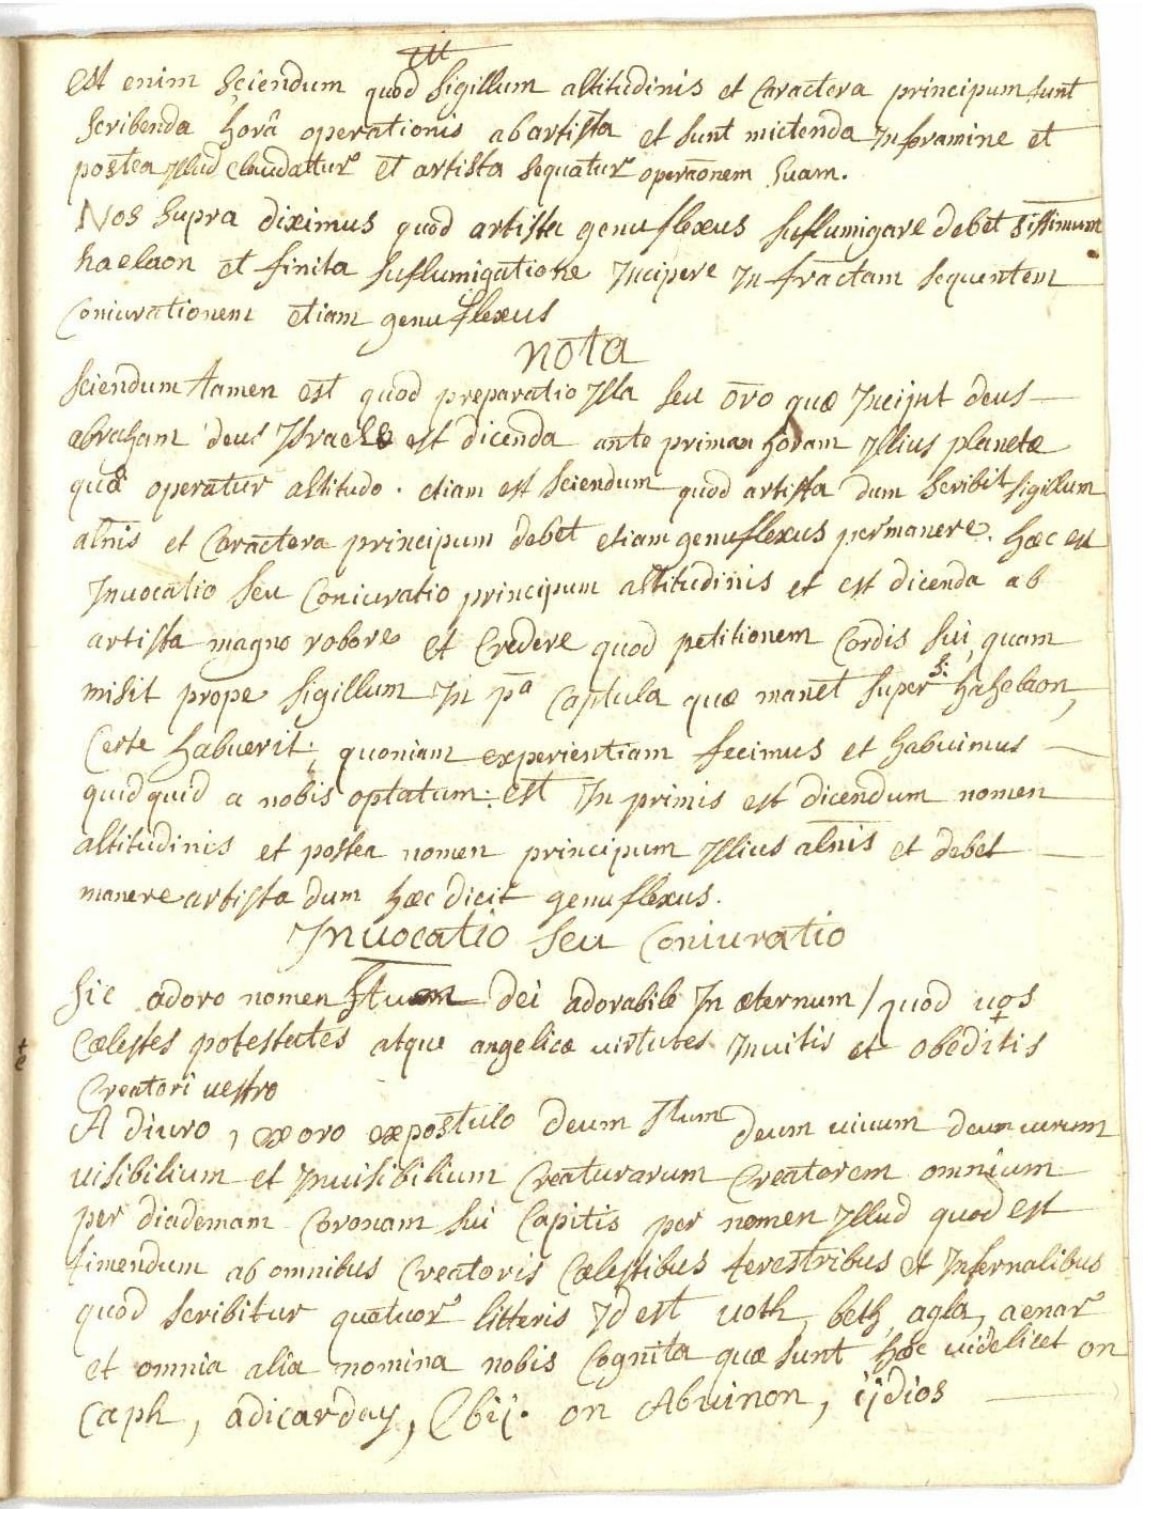 est enim sciendum quod sigillum altitudinis et caractera principum sunt
scribenda horâ operationis ab artista et sunt mictenda in foramine et
postea yllud claudattur et artista sequatur operaōnem suam.
Nos supra diximus quod artista genuflexus suflumigare debet
haelaon et finita suflumigatione incipere in fractam sequentem
coniurationem etiam genuflexus
nota
sciendum tamen est quod preparatio ylla seu ōro quæ incipit deus
abraham deus Israel est dicenda ante primam horam yllius planetæ
quâ operatur altitudo. etiam est sciendum quod artista dum scribit sigillum
alnis et caractera principum debet etiam genuflexus permanere. hæc est
Inuocatio seu coniuratio principum altitudinis et est dicenda ab
artista magno robore et credere quod petitionem cordis sui, quam
misit prope sigillum in pa captula quæ manet super s: hahelaon,
certe habuerit; quoniam experientiam fecimus et habuimus
quidquid a nobis optatum: est In primis est dicendum nomen
altitudinis et postea nomen principum yllius alnis et debet
manere artista dum hæc dicit genuflexus.
Inuocatio seu coniuratio
sic adoro nomen dei adorabile in æternum / quod uos
cœlestes potestates atque angelicæ uirtutes inuitis et obeditis
creatori uestro
A diuro, exoro expostulo deum stum deum uiuum deum uerum
uisibilium et inuisibilium creaturarum creatorem omnium
per diademam coronam sui capitis per nomen yllud quod est
timendum ab omnibus creatoris cœlestibus terestribus et infernalibus
quod scribitur quatuor litteris id est uoth, beth, agla, aenar
et omnia alia nomina nobis cognita quæ sunt hæc uidelicet on
caph, adicarday, Ebij. on Abuinon, ijdios